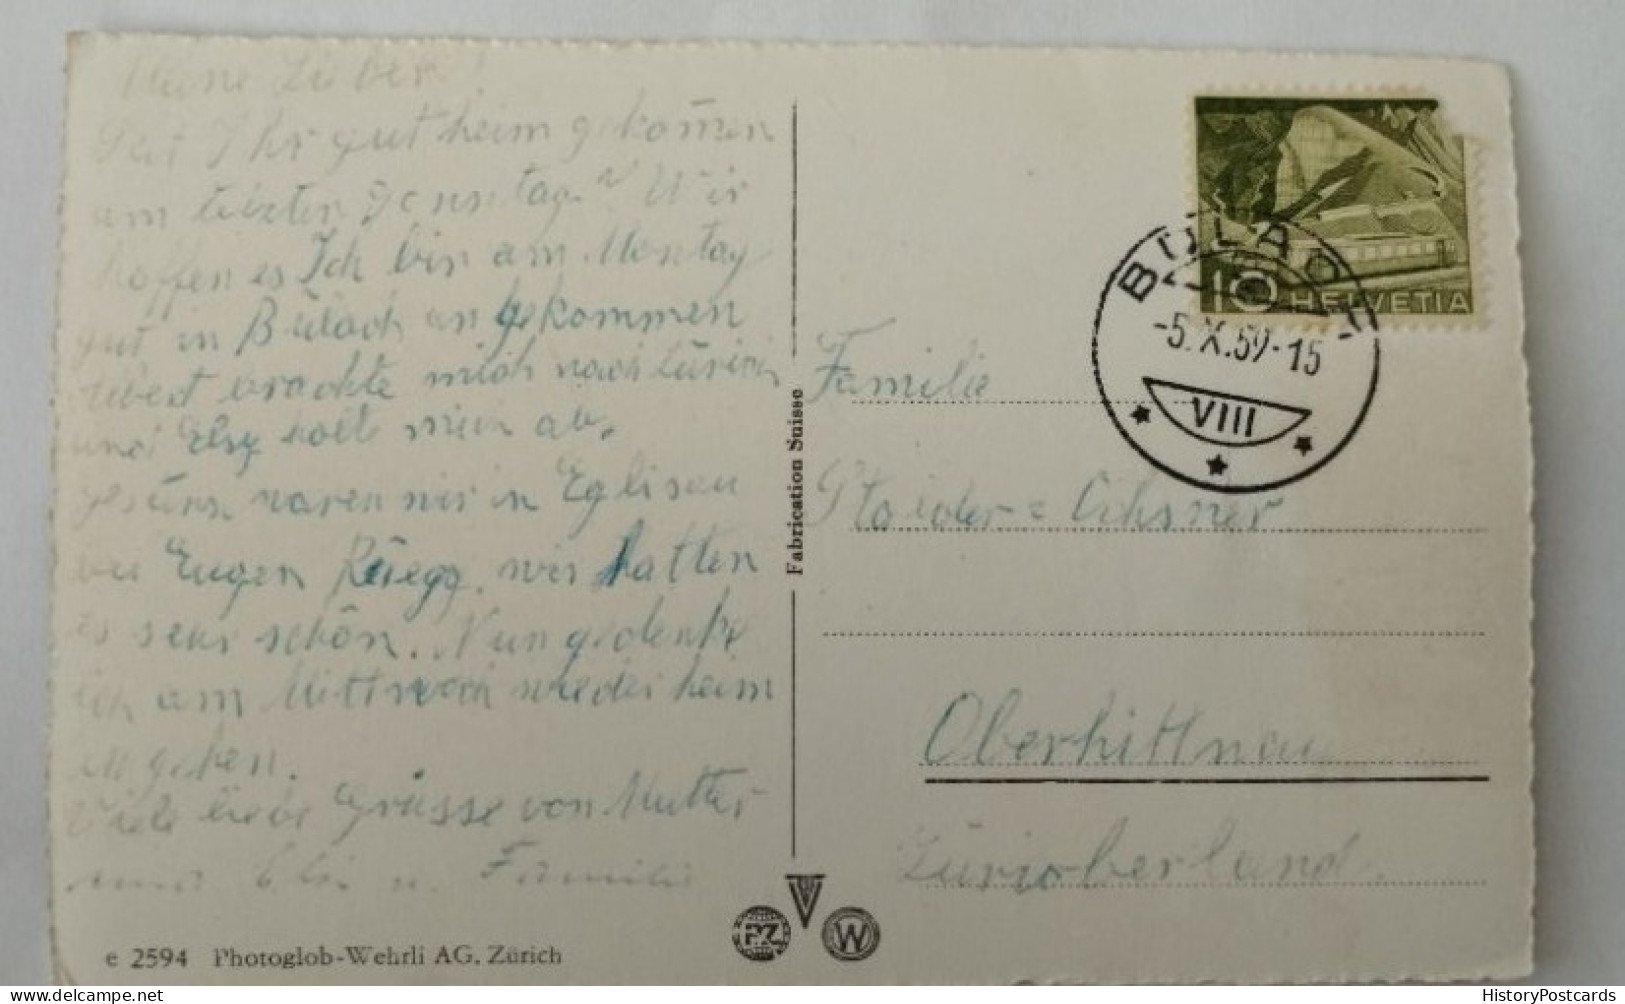 Meine Lieben!
Seit Ihr gut heim gekommen
am letzten Sonntag? Wir
hoffen es Ich bin am Montag
gut in Bülach angekommen
brachte mich nach Zürich
und Elsy holt mich ab.
gestern waren wir in Eglisau
bei Eugen Rüegg. wir hatten
es sehr schön. Nun gedenke
ich am Mittwoch wieder heim
zu gehen.
Viele liebe Grüsse von Mutter
und Elsi u. Familie
e 2594 Photoglob-Wehrli AG, Zürich
Fabrication Suisse
PZ
W
10 HELVETIA
BÜLACH
-5.X.59-15
VIII
Familie
Oberhittnau
Zürioberland.
HistoryPostcards